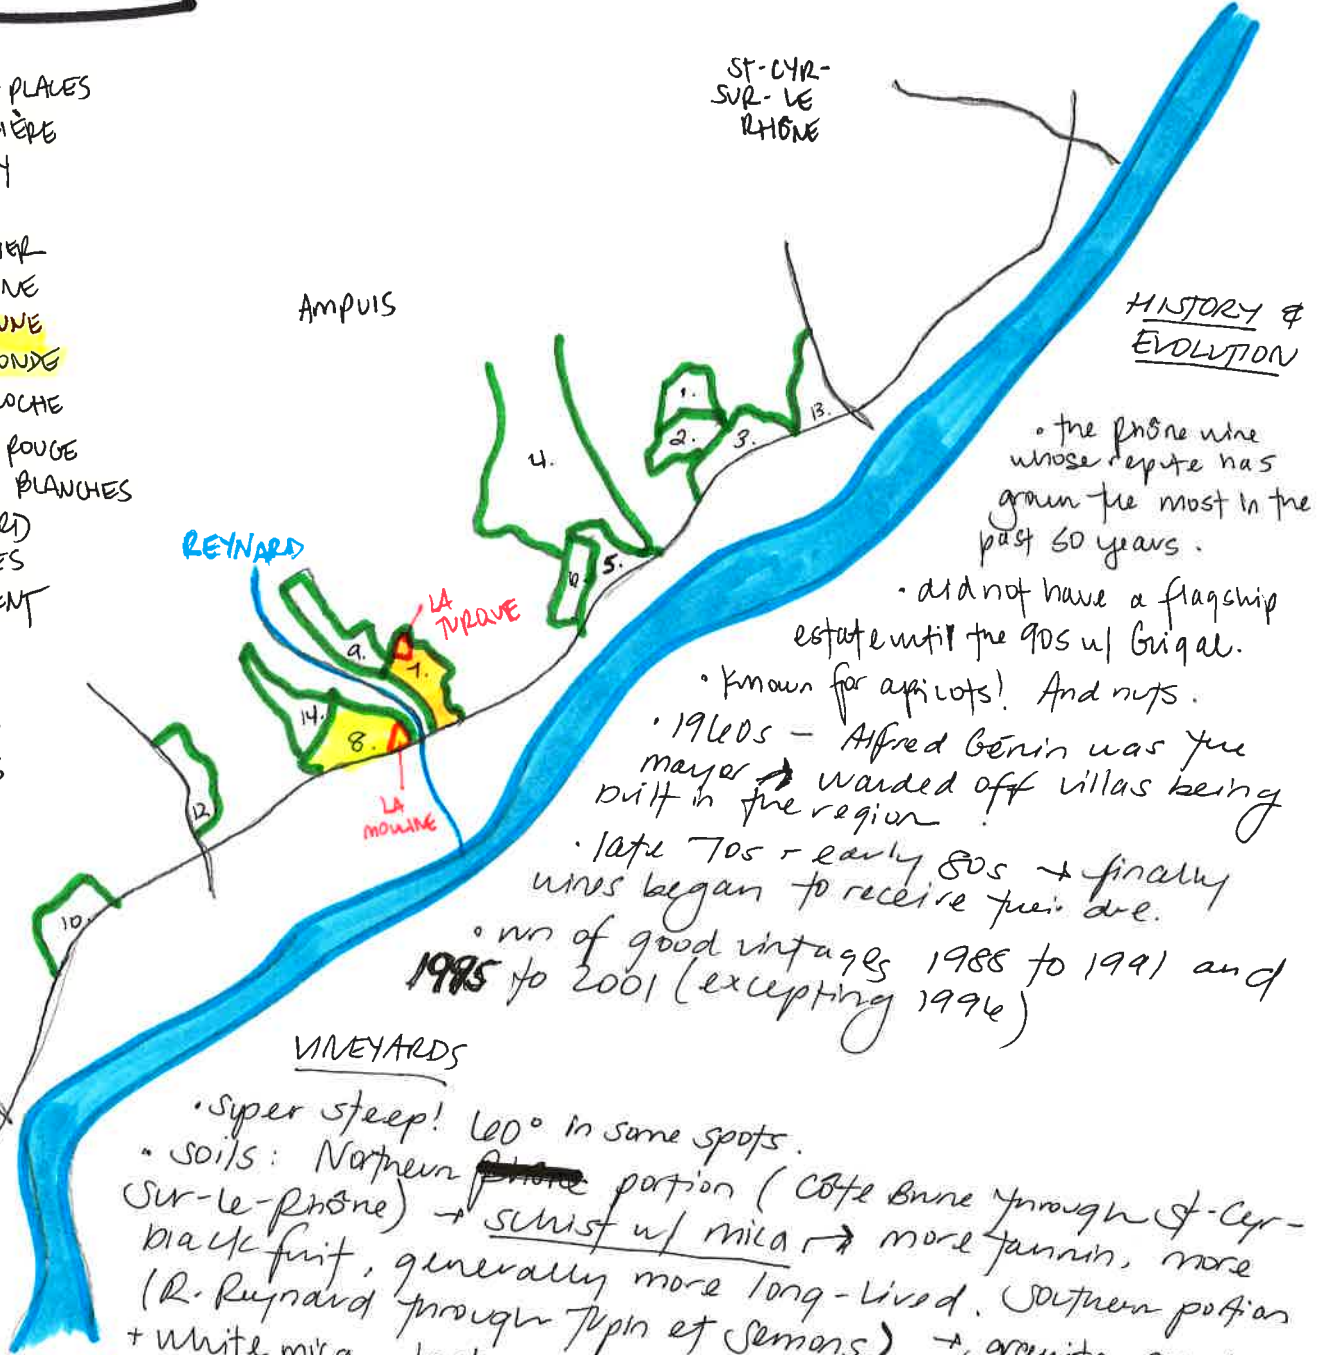 PLACES
IÈRE
Y
IER
NE
UNE
ONDE
LOCHE
ROUGE
BLANCHES
RD
ES
ENT
S
ST-CYR-
SUR-LE
RHÔNE
AMPUIS
REYNARD
LA
TURQUE
LA
MOULINE
1.
2.
3.
4.
5.
6.
7.
8.
9.
10.
12
13.
14.
HISTORY &
EVOLUTION
• the Rhône wine
whose repute has
grown the most in the
past 50 years.
• did not have a flagship
estate until the 90s w/ Guigal.
• Known for apricots! And nuts.
• 1960s – Alfred Génin was the
mayor → warded off villas being
built in the region!
• late 70s - early 80s → finally
wines began to receive their due.
• run of good vintages 1988 to 1991 and
1995 to 2001 (excepting 1996)
VINEYARDS
• super steep! 60° in some spots.
• soils: Northern portion (Côte Brune through St-Cyr-
sur-le-Rhône) → schist w/ mica → more tannin, more
black fruit, generally more long-lived. Southern portion
(R. Reynard through Tupin et Semons) → granite
+ white mica